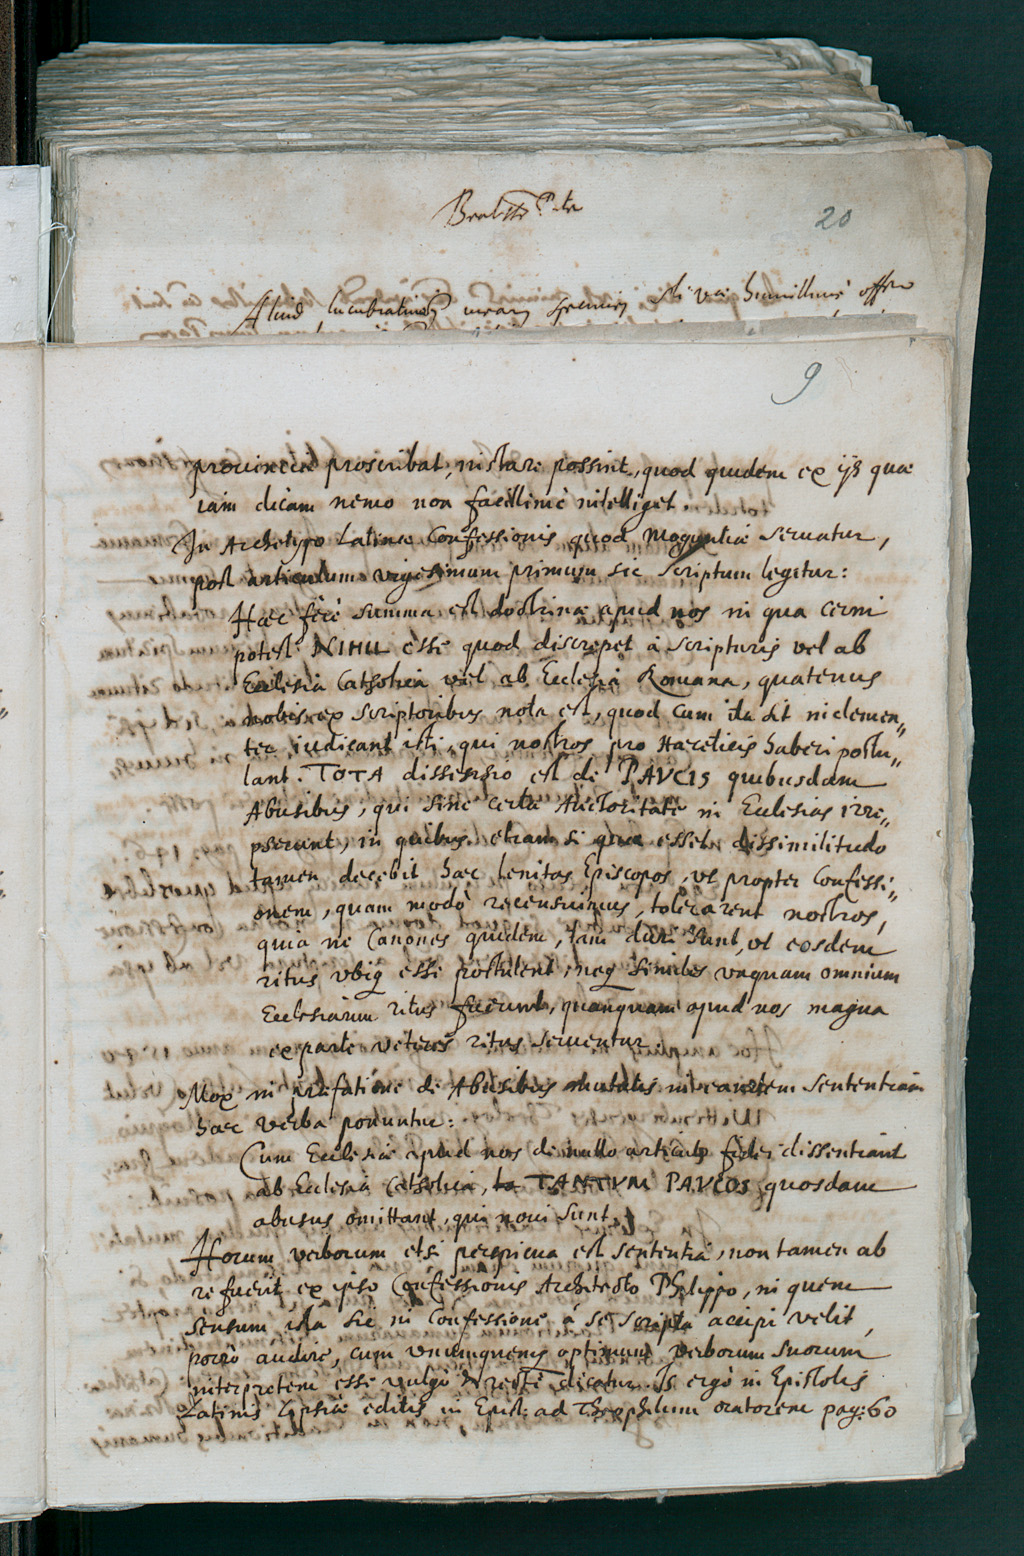 20
Aliud lucubrationum mearum specimen humillime offero
9
provinciâ proscribat, instare possint, quod quidem ex ijs quæ
iam dicam nemo non facillimè intelliget.
In Archetypo Latinæ Confessionis quod Moguntiæ servatur,
post articulum vigesimum primum sic scriptum legitur:
Hæc ferè summa est doctrinæ apud nos in qua cerni
potest NIHIL esse quod discrepet à scripturis vel ab
Ecclesia Catholica vel ab Ecclesia Romana, quatenus
nobis ex scriptoribus nota est, quod cum ita sit inclemen„
ter iudicant isti, qui nostros pro Hæreticis haberi postu„
lant. TOTA dissensio est de PAVCIS quibusdam
Abusibus, qui sine certa Auctoritate in Ecclesias irre„
pserunt, in quibus etiam si qua esset dissimilitudo
tamen decebit hæc lenitas Episcopos, ut propter Confessi„
onem, quam modò recensuimus, tolerarent nostros,
quia ne Canones quidem, tam duri sunt, ut eosdem
ritus ubiq esse postulent, neq similes unquam omnium
Ecclesiarum ritus fuerunt, quanquam apud nos magna
ex parte veteres ritus serventur.
Mox in præfatione de Abusibus mutatis in eandem sententiam
hæc verba ponuntur:
Cum Ecclesiæ apud nos de nullo articulo fidei dissentiant
ab Ecclesia Catholica, TANTVM PAVCOS quosdam
abusus omittant, qui novi sunt.
Horum verborum etsi perspicua est sententia, non tamen ab
re fuerit ex ipso Confessionis Architecto Philippo, in quem
sensum ista sic in Confessione à se scripta accipi velit,
porrò audire, cum unumquemq optimum verborum suorum
interpretem esse vulgò & rectè dicatur. Is ergò in Epistolis
Latinis Lipsiæ editis in Epist: ad Theophilum oratorem pag: 60